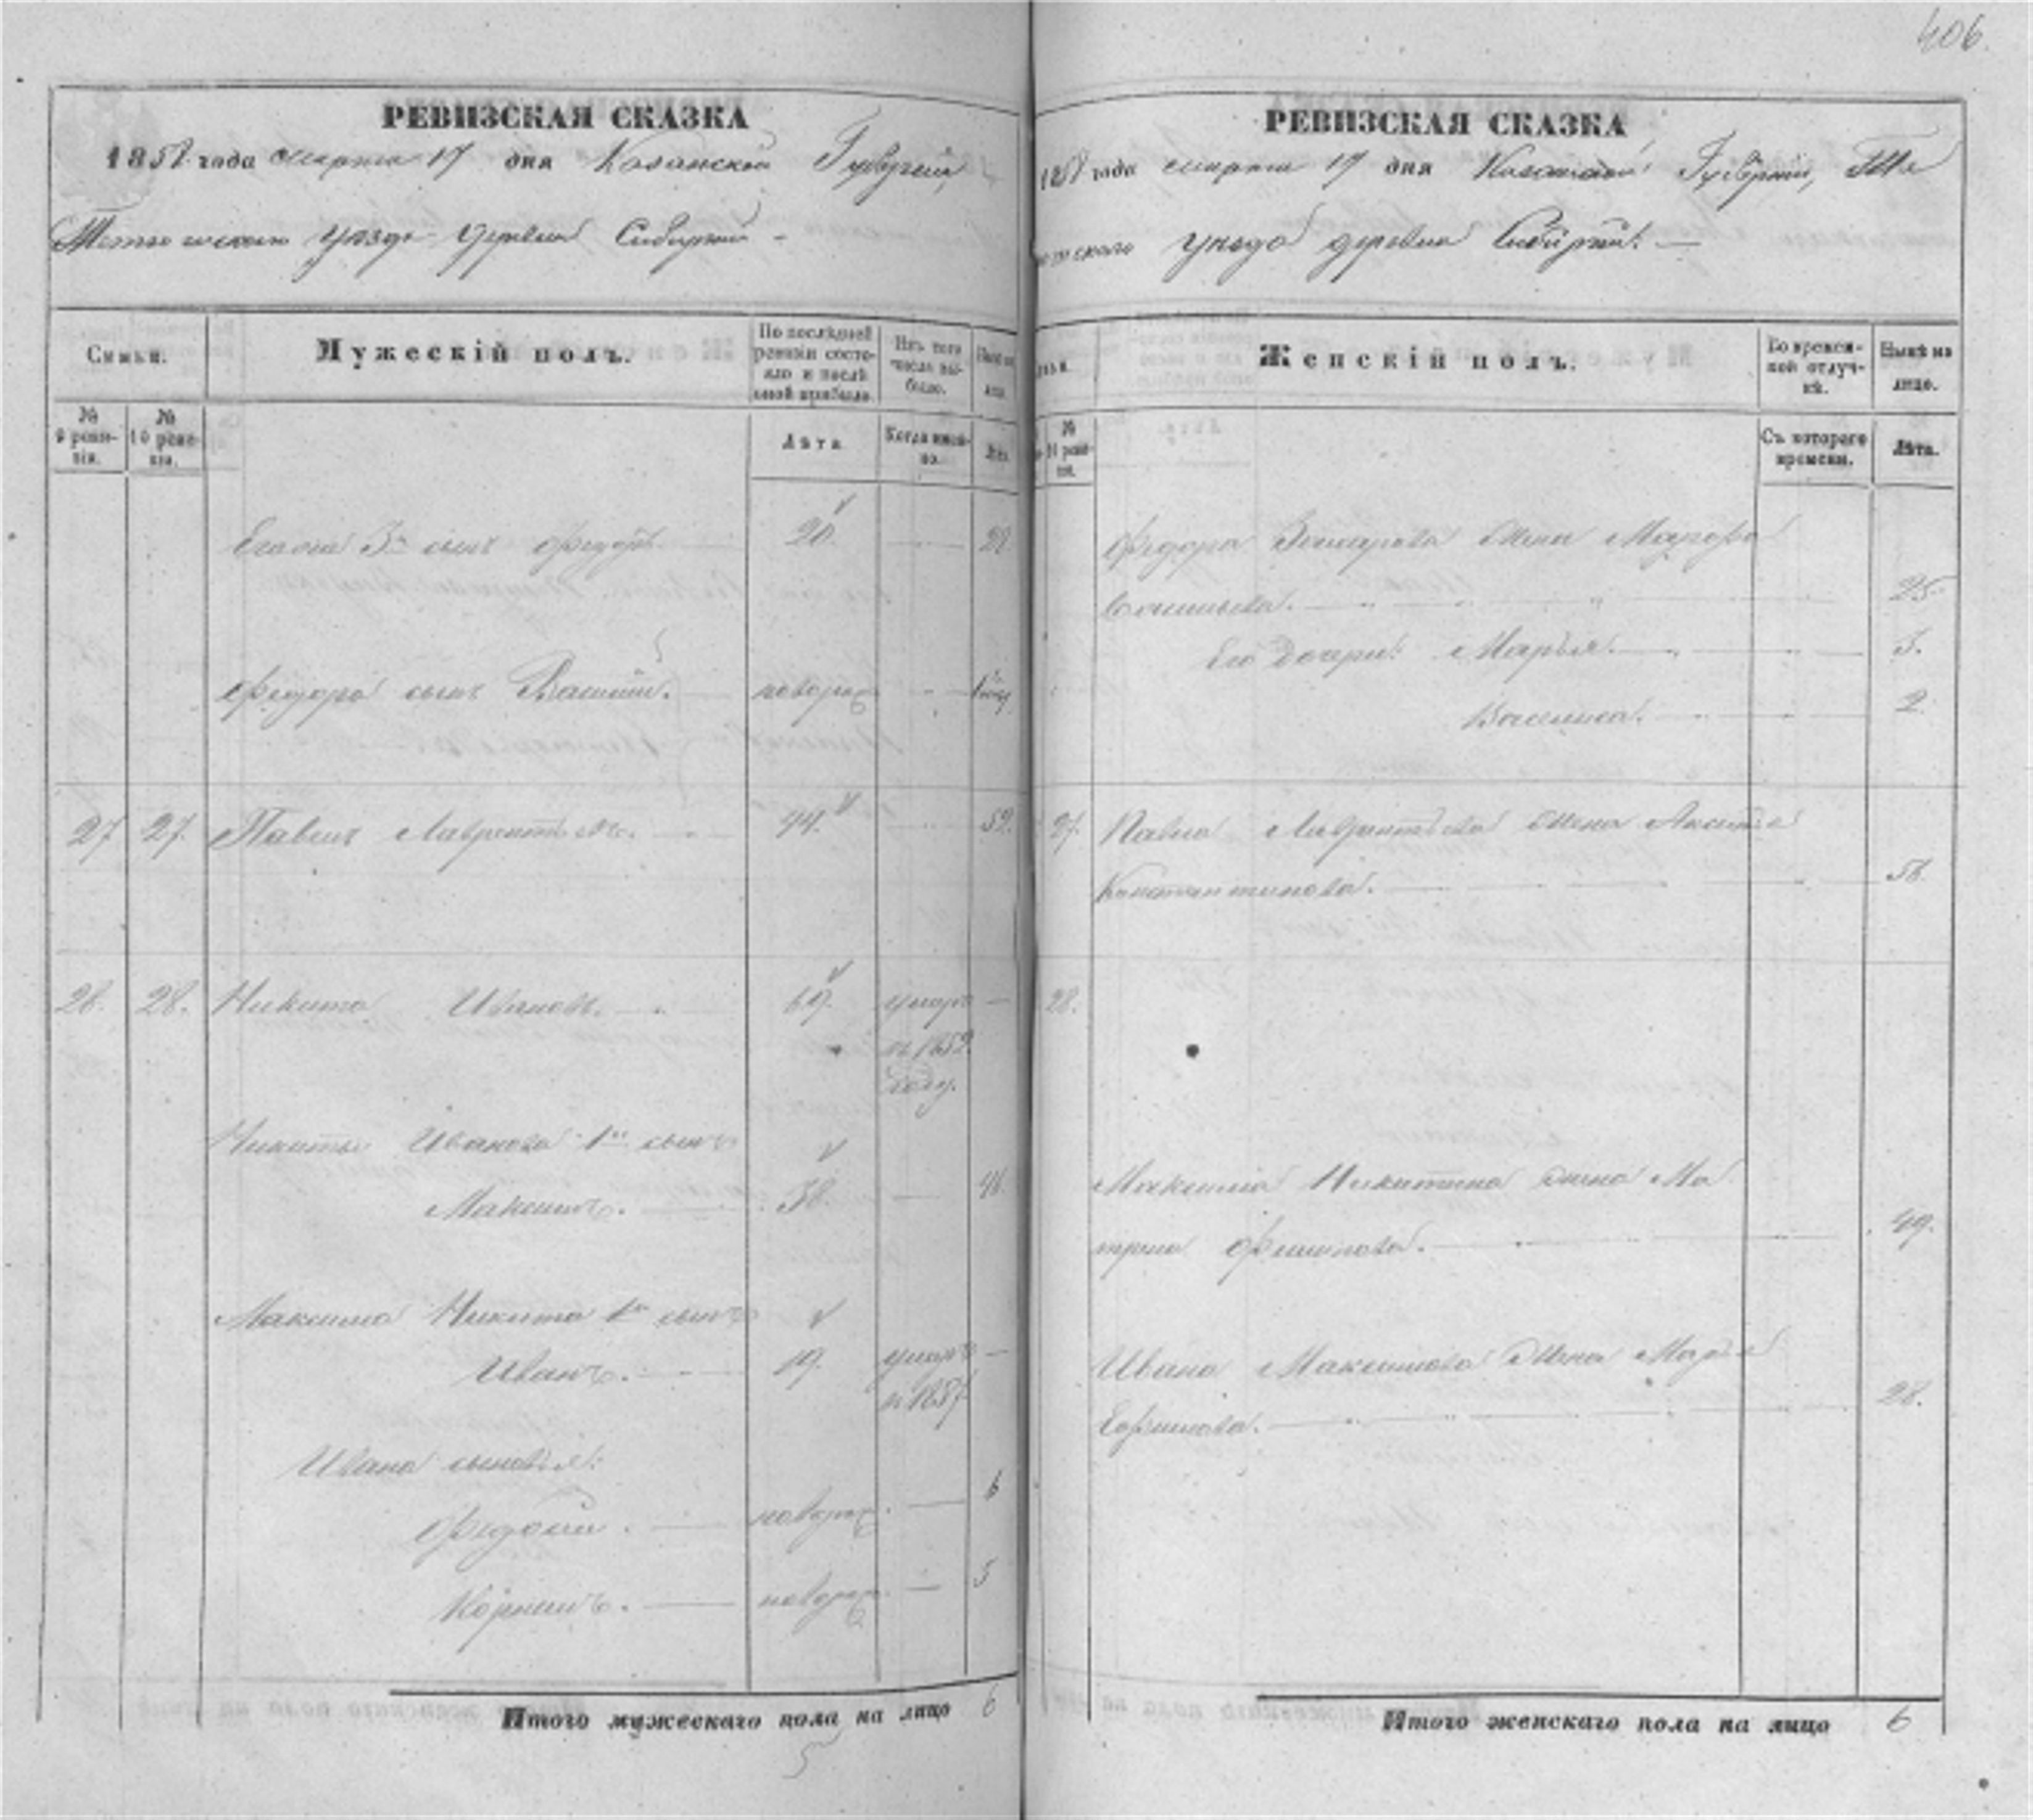 406.
РЕВИЗСКАЯ СКАЗКА
1858 года марта 17 дня Казанской Губернiи,
Тетюшскаго уезда деревни Сибирчи
Семьи.
Мужескій полъ.
По послѣдней ревизіи состояло и послѣ оной прибыло.
Изъ того числа выбыло.
№ 9 ревизіи.
№ 10 ревизіи.
Лѣта
Когда именно.
Лѣта.
3й сынъ Федоръ 20
Федора сынъ Василій. новорож
27 27. Павелъ Лаврентьевъ. 44. 52.
28. 28. Никита Ивановъ. 69. умеръ
въ 1852
году.
Никиты Иванова 1й сынъ
Максимъ. 38. 46.
Максима Никита 1й сынъ
Иванъ. 19. умеръ
въ 1857
Ивана сыновья:
новорож. 6
новорож. 5
Итого мужескаго пола на лицо 6
РЕВИЗСКАЯ СКАЗКА
1858 года марта 17 дня Казанской Губернiи, Те
тюшскаго уезда деревни Сибирчи.
Женскій полъ.
Во временной отлучкѣ.
Нынѣ на лицо.
№ 10 ревизіи.
Съ котораго времени.
Лѣта.
Федора Захарова жена
Васильева. 25
Его дочери: Марья. 3.
2.
27. Павла Лаврентьева жена
Константинова. 58.
28.
Максима Никитина жена Ма
трена Филипова. 49.
Ивана Максимова жена Марья
Ефимова. 28.
Итого женскаго пола на лицо 6